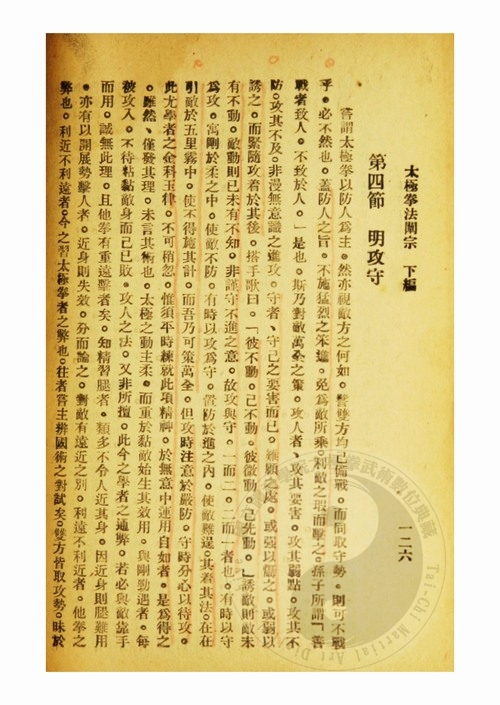 太極拳法闡宗　下編
一二六
第四節　明攻守
嘗謂太極拳以防人爲主。然亦視敵方之何如。譬雙方均已備戰。而同取守勢。則可不戰
乎。必不然也。蓋防人之旨。不施猛烈之笨進。免爲敵所乘。利敵之瑕而擊之。孫子所謂「善
戰者致人。不致於人。」是也。斯乃對敵萬全之策。攻人者、攻其要害。攻其弱點。攻其不
防。攻其不及。非漫無意識之進攻。守者、守己之要害而已。難顧之處。或強以備之。或弱以
誘之。而緊隨攻着於其後。搭手歌曰。「彼不動。己不動。彼微動。己先動。」誘敵則敵未
有不動。敵動則己未有不知。非謹守不進之意。故攻與守。一而二。二而一者也。有時以守
爲攻。寓剛於柔之中。使敵不防。有時以攻爲守。置防於進之內。使敵難逞。其着其法。在在
引敵於五里霧中。使不得施其計。而吾乃可策萬全。但攻時注意於嚴防。守時分心以待攻。
此尤學者之金科玉律。不可稍忽。惟須平時練就此項精神。於無意中運用自如者。是爲得之
。雖然、僅發其理。未言其術也。太極之動主柔。而重於黏敵始生其效用。與剛勁遇者。每
被攻入。不待粘黏敵身而己已敗。攻人之法。又非所擅。此今之學者之通弊。若必與敵靠手
而用。誠無此理。且他拳有重遠擊者矣。知精習腿者。類多不令人近其身。因近身則腿難用
。亦有以開展勢擊人者。近身則失效。分而論之。對敵有遠近之別。利遠不利近者。他拳之
弊也。利近不利遠者。今之習太極拳者之弊也。往者嘗主辦國術之對試矣。雙方皆取攻勢。昧於
Tai-Chi Martial Art